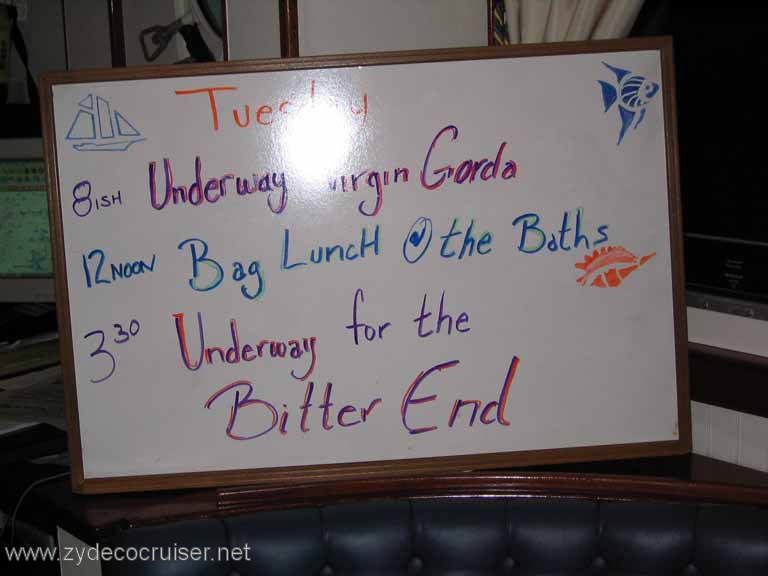 Tuesday
8ISH Underway Virgin Gorda
12 NOON Bag LuncH @ the Baths
3 30 Underway for the
Bitter End
www.zydecocruiser.net